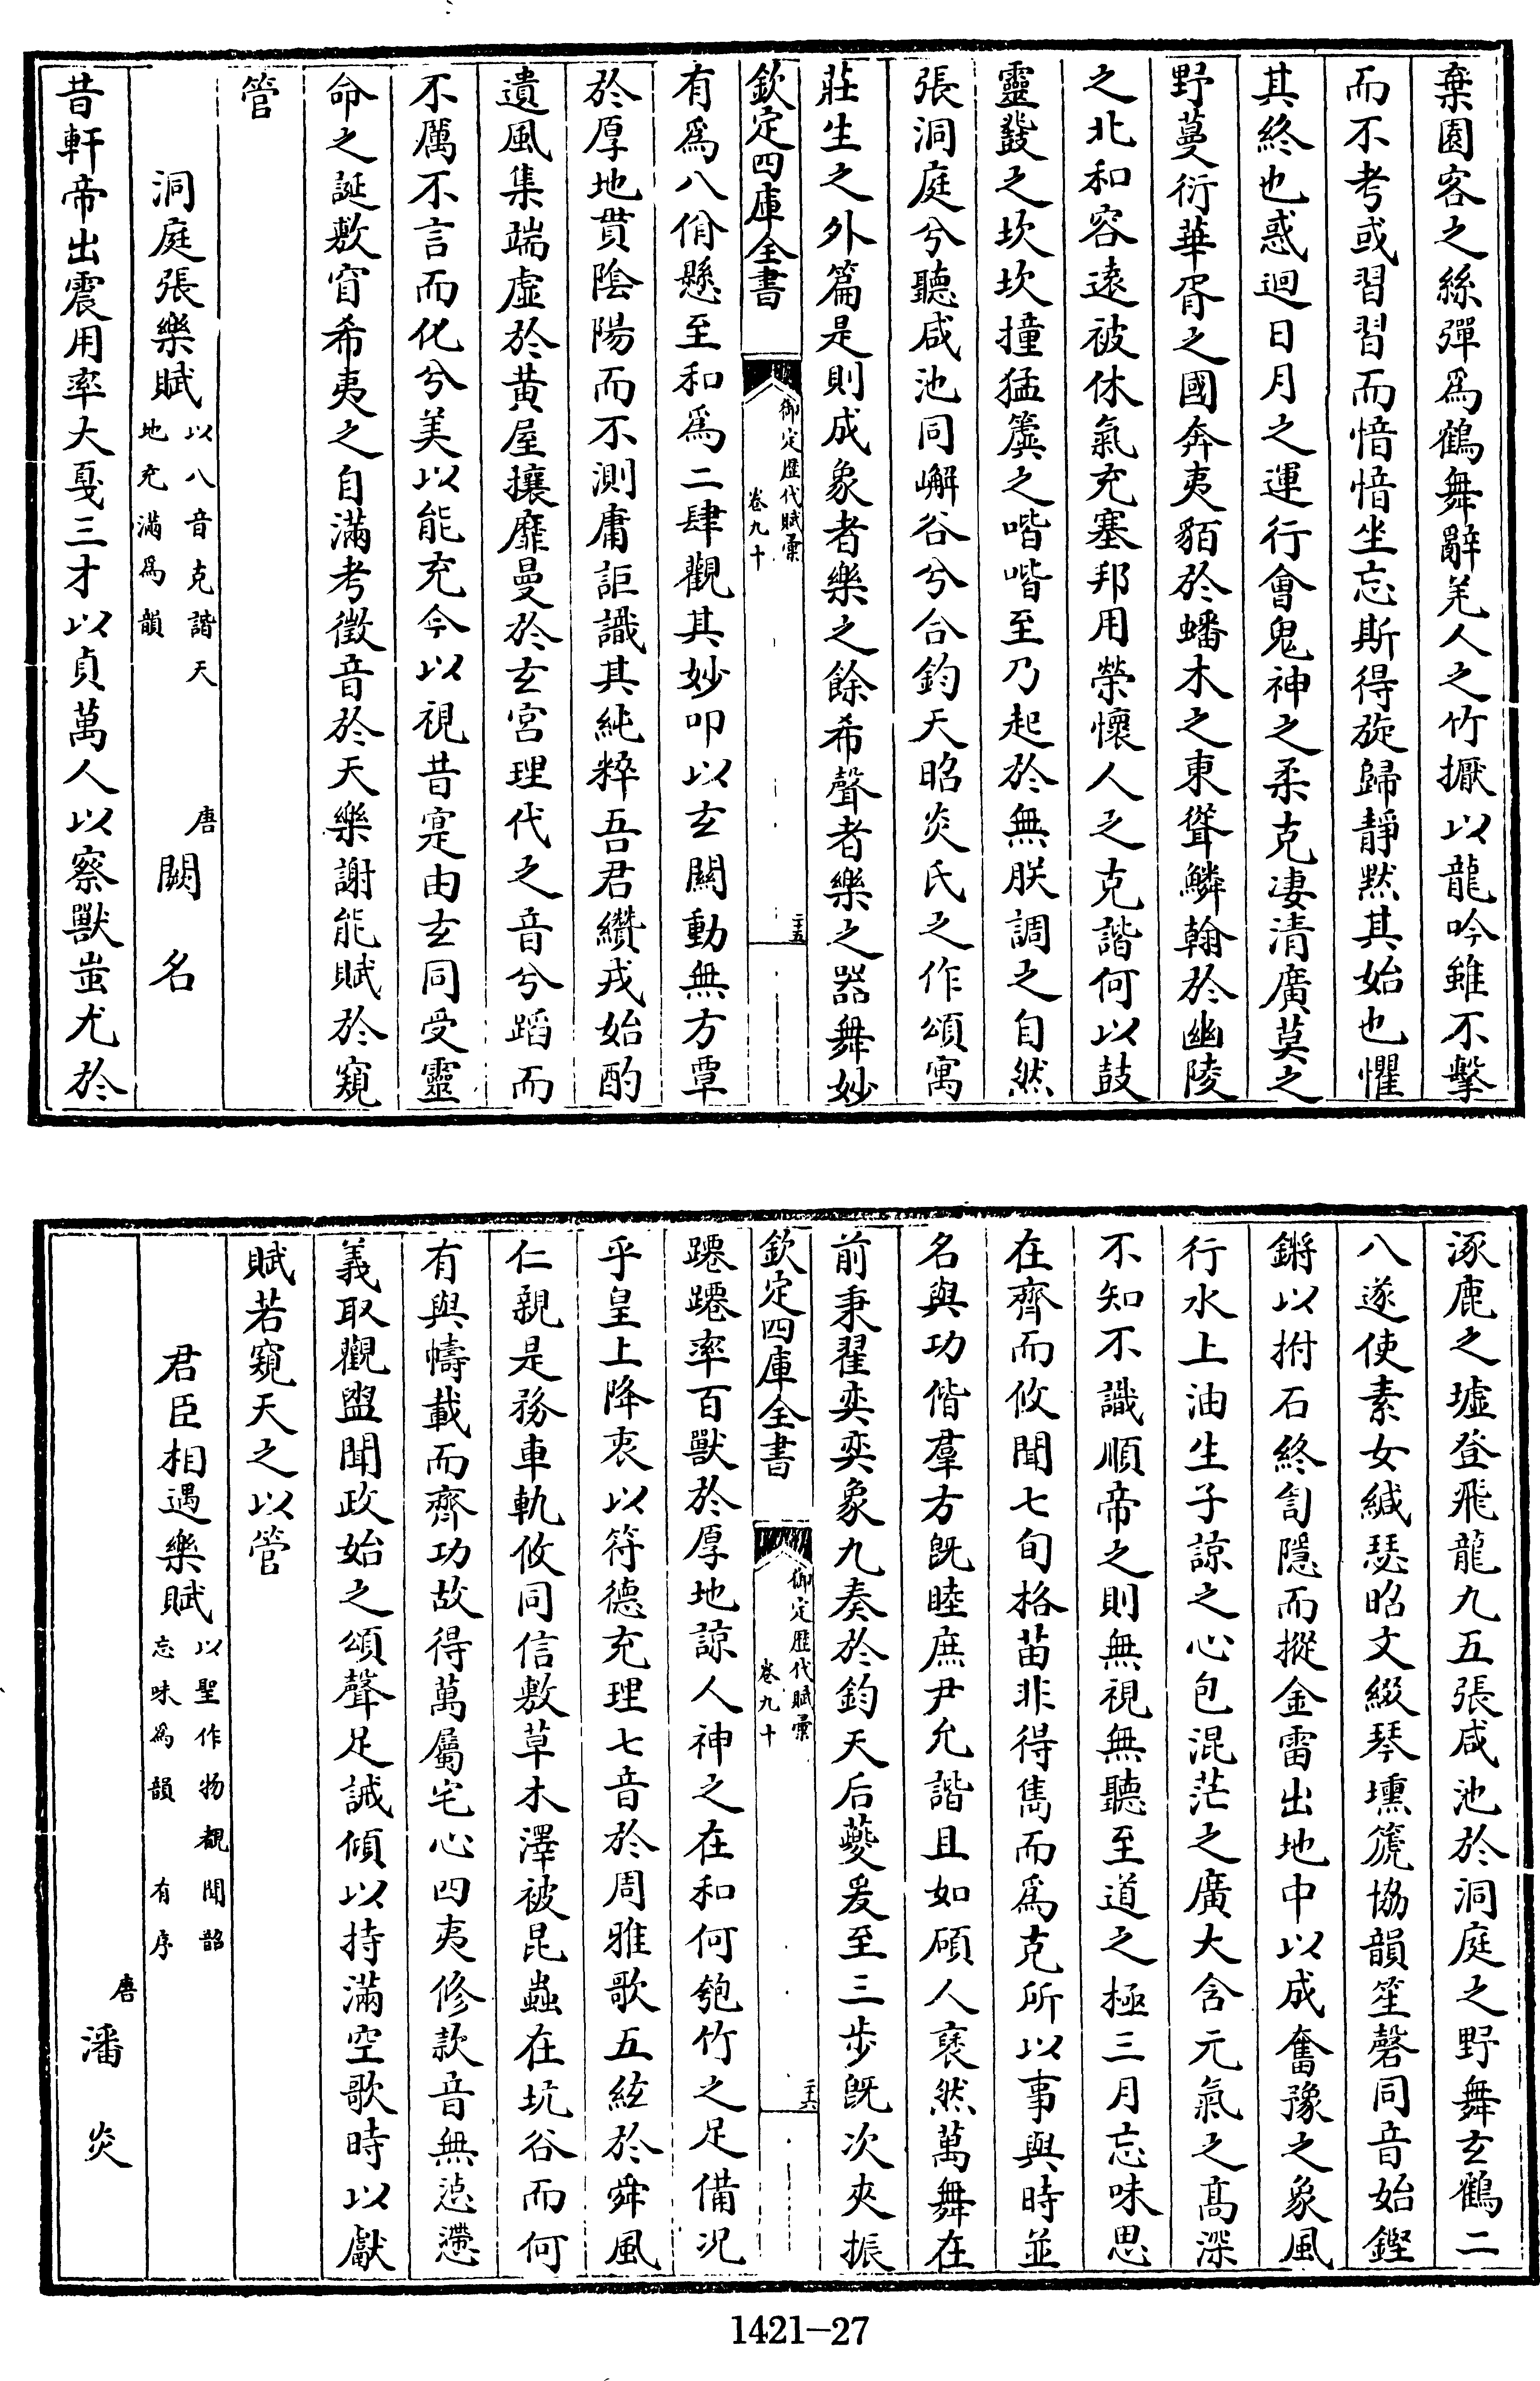 棄園客之絲彈爲鶴舞辭羌人之竹擫以龍吟雖不擊
而不考或習習而愔愔坐忘斯得旋歸靜黙其始也懼
其終也惑迴日月之運行會鬼神之柔克凄清廣莫之
野蔓衍華胥之國奔夷貊於蟠木之東聳鱗翰於幽陵
之北和容遠被休氣充塞邦用榮懷人之克諧何以鼓
靈鼗之坎坎撞猛簴之喈喈至乃起於無朕調之自然
張洞庭兮聽咸池同嶰谷兮合鈞天昭炎氏之作頌寓
莊生之外篇是則成象者樂之餘希聲者樂之器舞妙
欽定四庫全書
御定歷代賦彙
卷九十
二十五
有爲八佾懸至和爲二肆觀其妙叩以玄關動無方覃
於厚地貫陰陽而不測庸詎識其純粹吾君纘戎始酌
遺風集端虛於黄屋攘靡曼於玄宮理代之音兮蹈而
不厲不言而化兮美以能充今以視昔寔由玄同受靈
命之誕敷窅希夷之自滿考徵音於天樂謝能賦於窺
管
洞庭張樂賦
以八音克諧天
地充滿爲韻
唐
闕名
昔軒帝出震用率大戛三才以貞萬人以察獸蚩尤於
涿鹿之墟登飛龍九五張咸池於洞庭之野舞玄鶴二
八遂使素女緘瑟昭文綴琴壎篪協韻笙磬同音始鏗
鏘以拊石終訇隱而摐金雷出地中以成奮豫之象風
行水上油生子諒之心包混茫之廣大含元氣之髙深
不知不識順帝之則無視無聽至道之極三月忘味思
在齊而攸聞七旬格苗非得雋而爲克所以事與時並
名與功偕羣方旣睦庶尹允諧且如碩人褎然萬舞在
前秉翟奕奕象九奏於鈞天后夔爰至三步旣次夾振
欽定四庫全書
御定歷代賦彙
卷九十
二十六
蹮蹮率百獸於厚地諒人神之在和何匏竹之足備況
乎皇上降衷以符德充理七音於周雅歌五絃於舜風
仁親是務車軌攸同信敷草木澤被昆蟲在坑谷而何
有與幬載而齊功故得萬屬宅心四夷修款音無惉懘
義取觀盥聞政始之頌聲足誡傾以持滿空歌時以獻
賦若窺天之以管
君臣相遇樂賦
以聖作物覩聞韶
忘味爲韻有序
唐
潘炎
1421-27